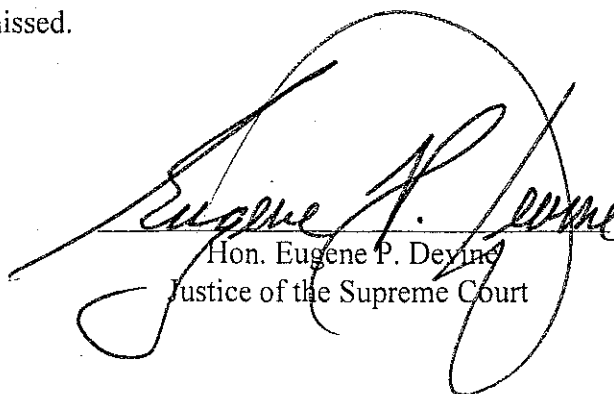 issed.
Eugene P. Devine
Hon. Eugene P. Devine
Justice of the Supreme Court